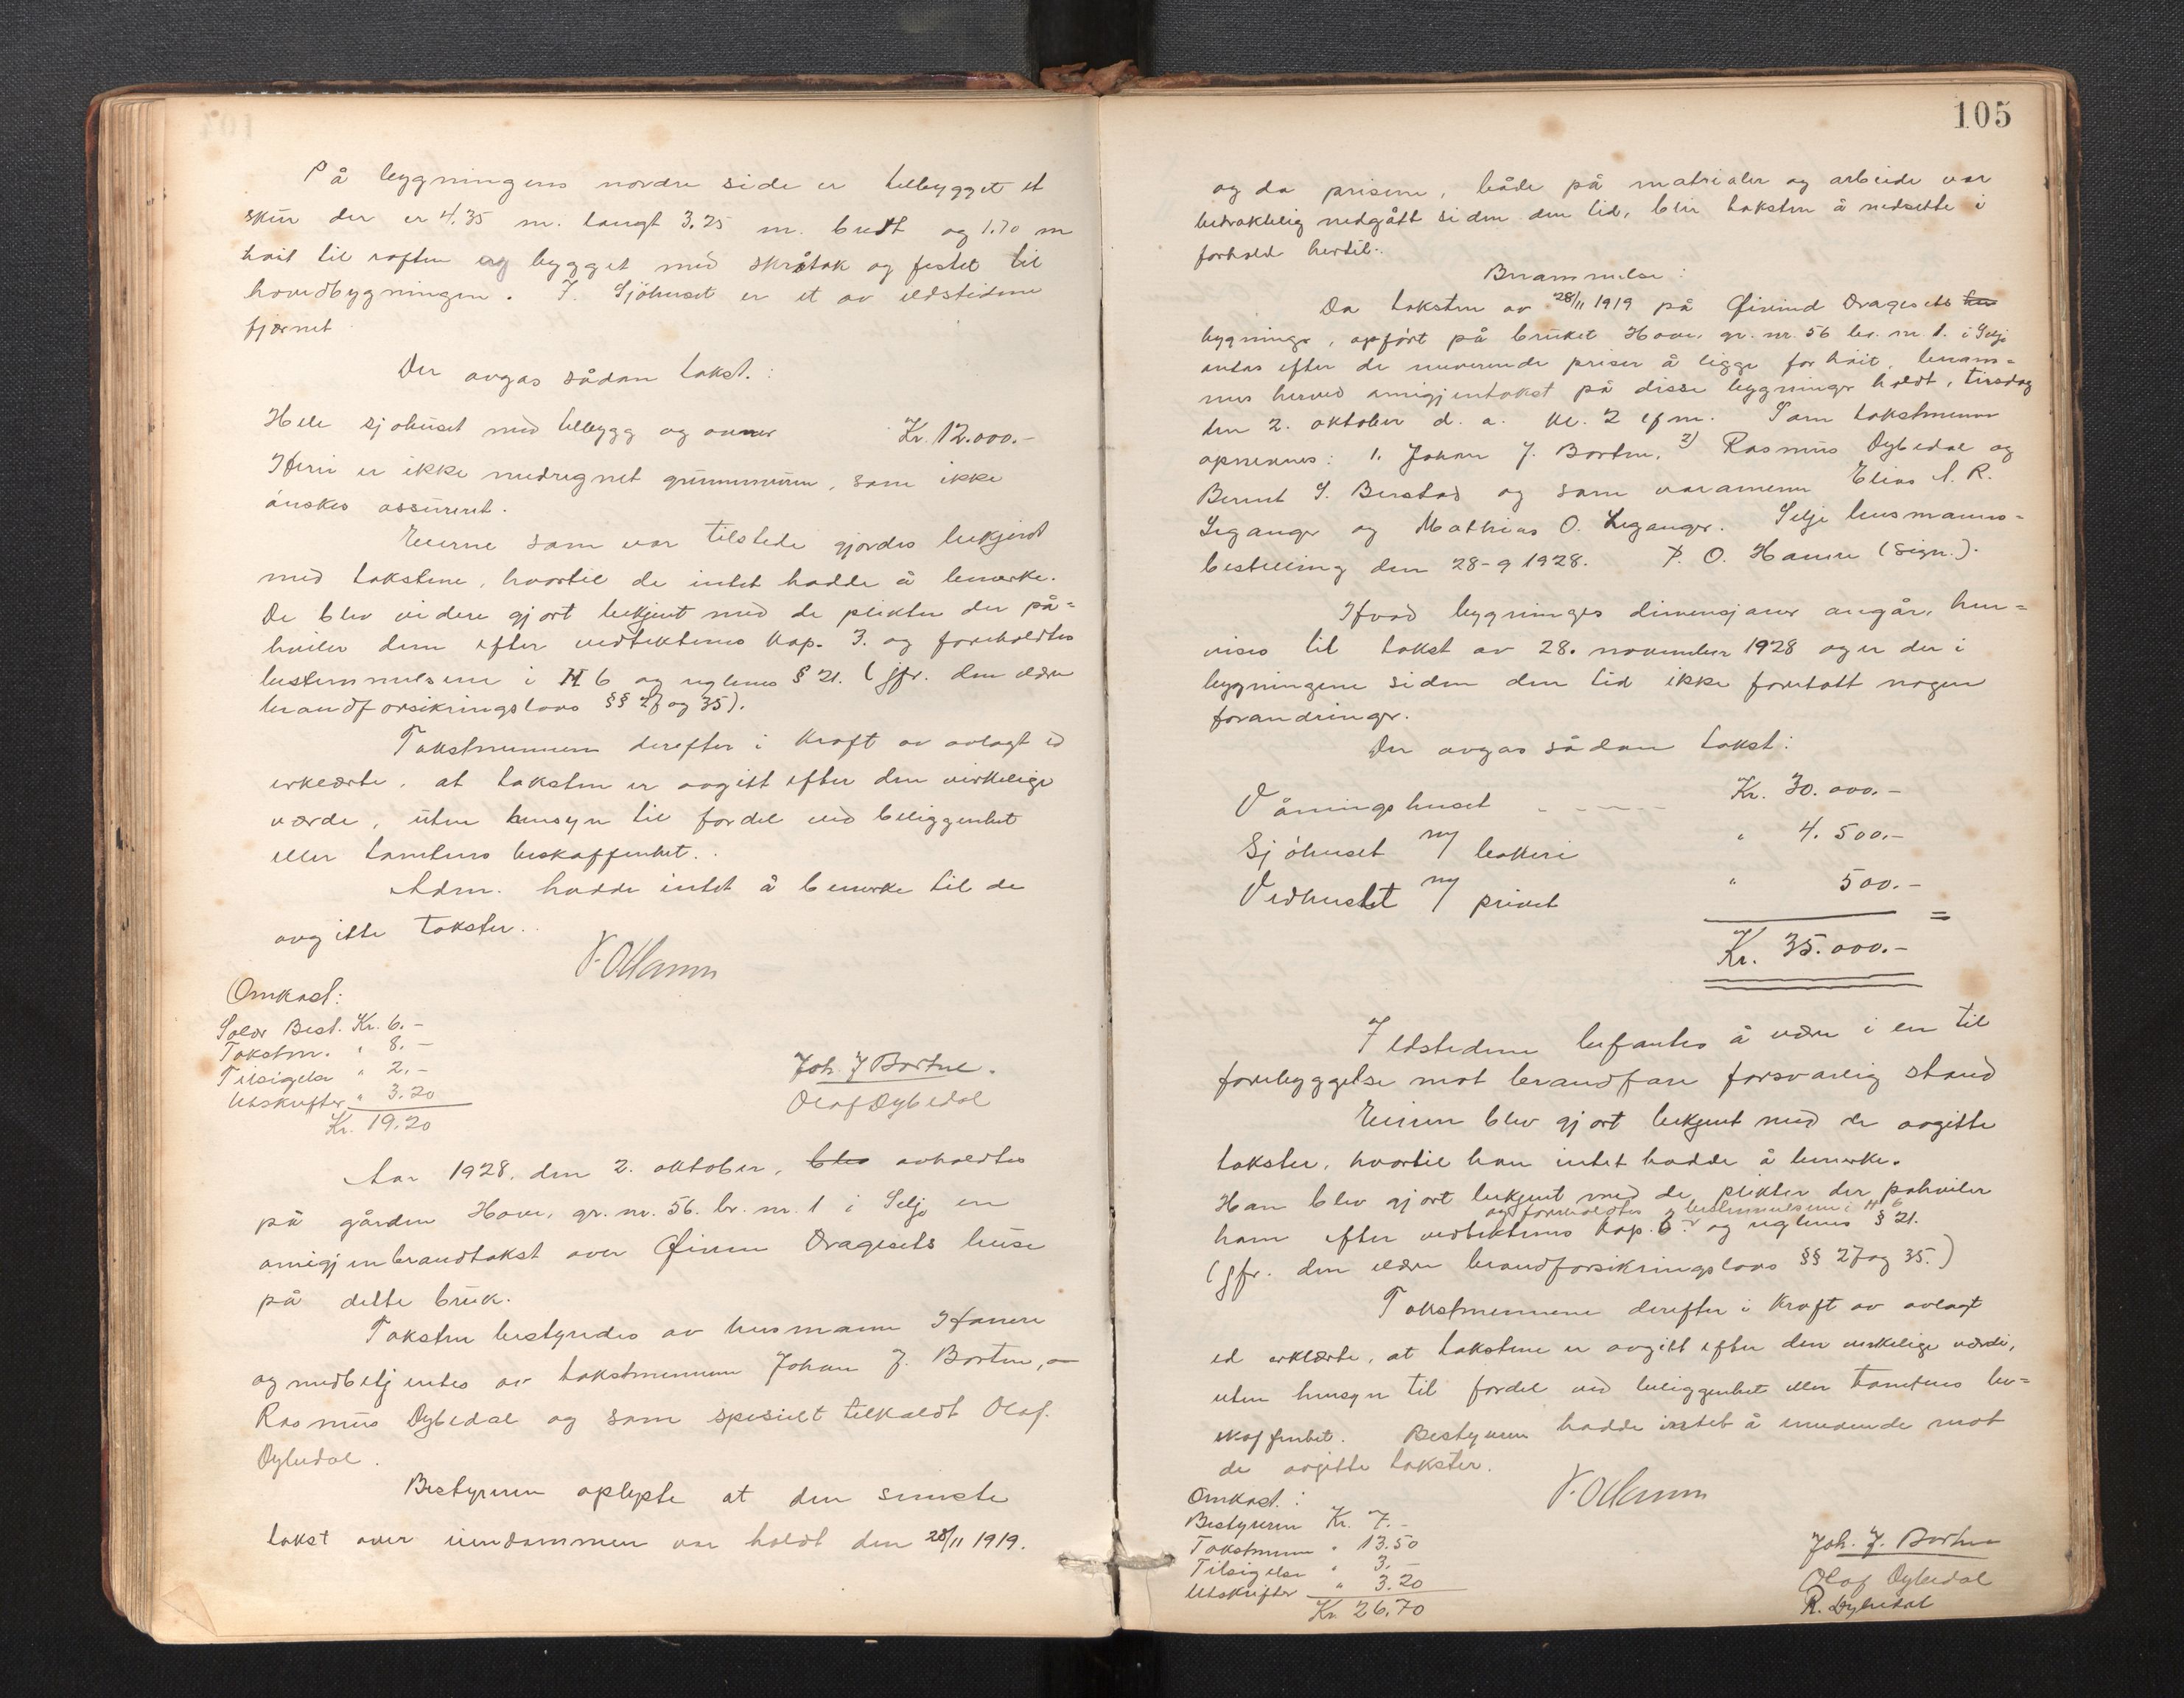 På bygningens nordre side er tilbygget et
skur der er 4.35 m. langt 3.25 m. bredt og 1.70 m
høit til raften og bygget med skråtak og festet til
hovedbygningen. I Sjöhuset er et av ildstedene
fjernet
Der avgas sådan takst.:
Hele sjøhuset med tilbygg og ovner Kr. 12.000.-
Heri er ikke medregnet grunnmuren, som ikke
önskes assurert.
Eierne som var tilstede gjordes bekjendt
med takstene, hvortil de intet hadde å bemerke.
De blev videre gjort bekjent med de plikter der på=
hviler dem efter vedtektenes kap. 3. og foreholdtes
bestemmelsene i H 6 og reglenes § 21. (jfr. den eldre
brandforsikringslovs §§ 27 og 35).
Takstmennene derefter i kraft av avlagt ed
erklærte, at taksten er avgitt efter den virkelige
værde, uten hensyn til fordel ved beliggenhet
eller tomtens beskaffenhet.
Adm. hadde intet å bemerke til de
avgitte takster.
P. O Hamre
Omkost:
Salær Best. Kr. 6.-
Takstm. " 8.-
Tilsigelse " 2.-
Utskrifter " 3.20
Kr. 19.20
Joh. J Bortne.
Olaf Dybedal
Aar 1928. den 2. oktober, blev avholdtes
på gården Hove, gr. nr. 56. br. nr. 1 i Selje en
omigjenbrandtakst over Øivin Dragesets huse
på dette bruk.
Taksten bestyredes av lensmann Hamre
og medbetjentes av takstmennene Johan J. Bortne, o
Rasmus Dybedal og som spesielt tilkaldt Olaf.
Dybedal.
Bestyreren oplyste at den seneste
takst over eiendommen var holdt den 28/11 1919.
105
og da prisene, både på materialer og arbeide var
betraktelig nedgått siden den tid, blir taksten å nedsette i
forhold hertil.
Berammelse:
Da taksten av 28/11 1919 på Øivind Dragesets hus
bygninger, opført på bruket Hove, gr. nr. 56 br. nr 1. i Selje
antas efter de nuverende priser å ligge for høit, beram=
mes herved omigjentakst på disse bygninger holdt, tirsdag
den 2. oktober d. a. kl. 2 efm. Som takstmenn
opnevnes: 1. Johan J. Bortne, 2) Rasmus Dybedal og
Bernt S. Berstad og som varamenn Elias A. R.
Leganger og Mathias O. Leganger. Selje lensmanns=
bestilling den 28-9 1928. P. O. Hamre (sign.).
Hvad bygninges dimensjoner angår, hen=
vises til takst av 28. november 1928 og er der i
bygningene siden den tid ikke foretatt nogen
forandringer.
Der avgas sådan takst:
Våningshuset - - - - Kr. 30.000.-
Sjöhuset m/ bakeri " 4.500.-
Vedhustet m/ privet " 500.- =
Kr. 35.000.-
Ildstedene befantes å være i en til
forebyggelse mot brandfare forsvarlig stand
Eieren blev gjort bekjent med de avgitte
takster, hvortil han intet hadde å bemerke.
Han blev gjort bekjent med de plikter der påhviler
og foreholdtes bestemmelsene i H 6
ham efter vedtektenes kap. 6 og reglenes § 21.
(jfr. den eldre brandforsikringslovs §§ 27 og 35.)
Takstmennene derefter i kraft av avlagt
ed erklærte, at takstene er avgitt efter den virkelige værdi,
uten hensyn til fordel ved beliggenhet eller tomtens be=
skaffenhet. Bestyreren hadde intet å invende mot
de avgitte takster.
P. O Hamre
Omkost.:
Bestyreren Kr. 7.-
Takstmenn " 13.50
Tilsigelse " 3.-
Utskrifter " 3.20
Kr. 26.70
Joh. J. Bortne
Olaf Dybedal
R. Dybedal